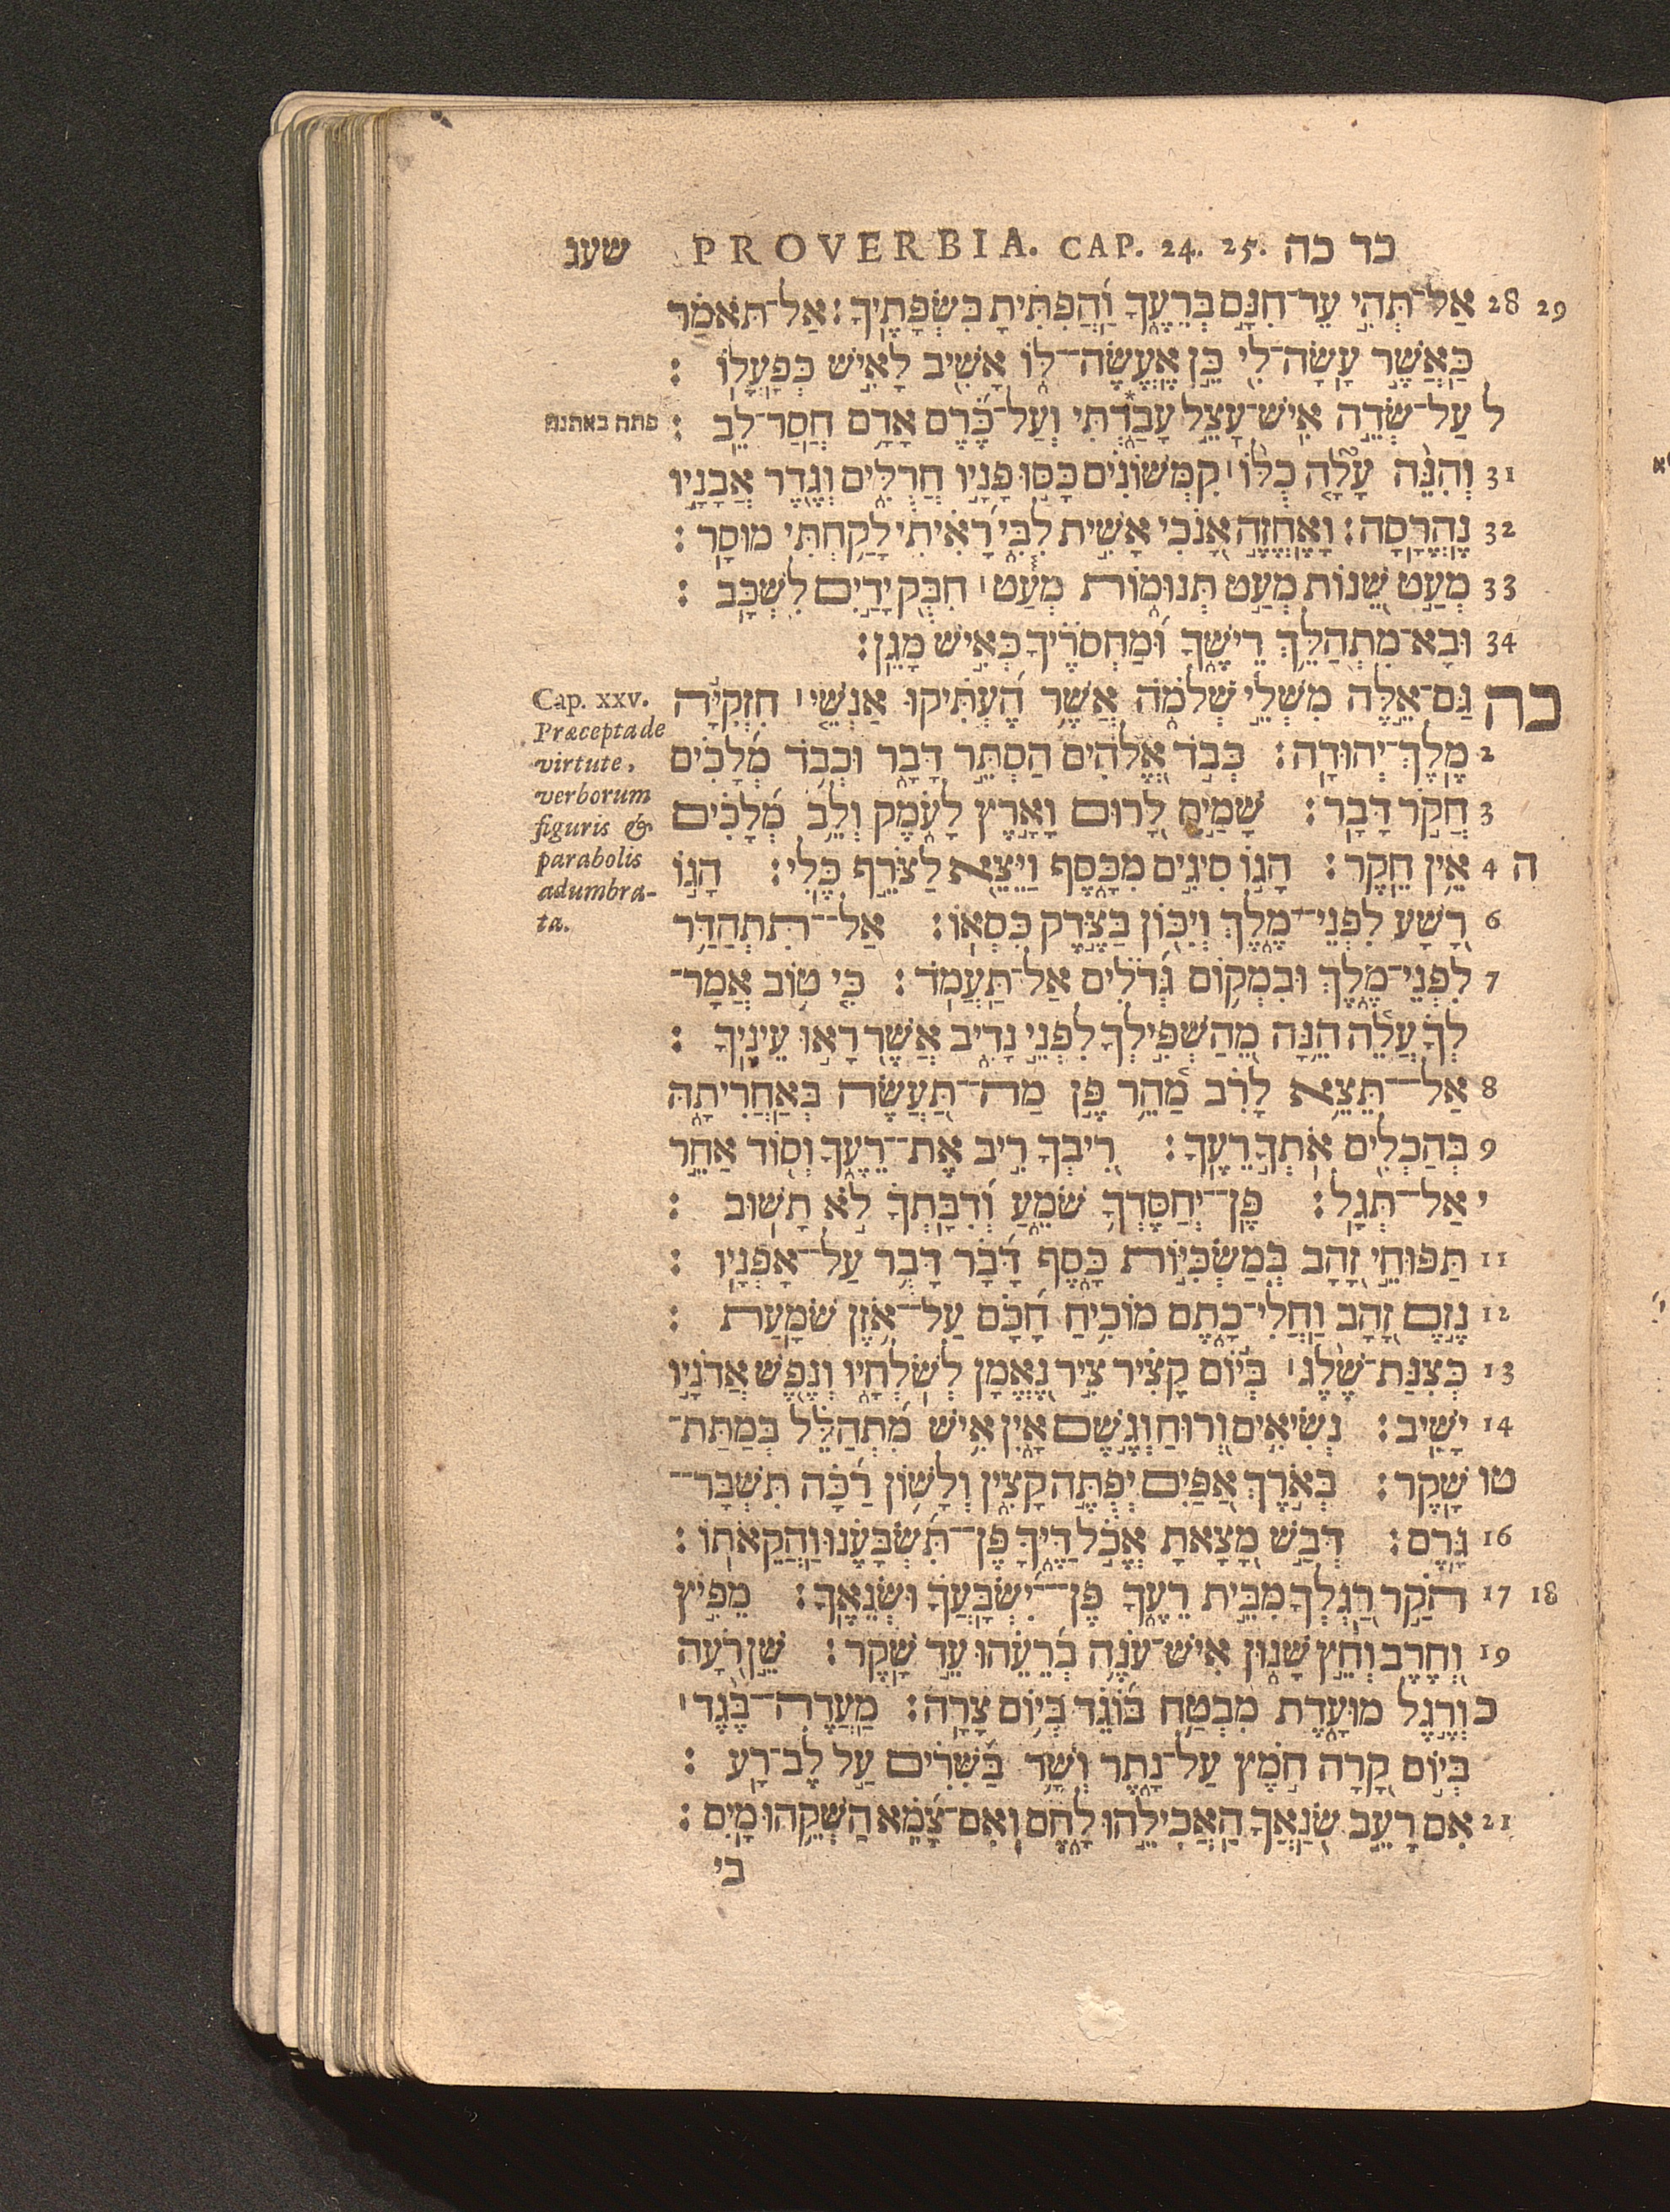 שעג PROVERBIA. CAP. 24. 25. כד כה
28 29 אַל־תְּהִי עֵד־חִנָּם בְּרֵעֶךָ וַהֲפִתִּיתָ בִּשְׂפָתֶיךָ׃ אַל־תֹּאמַר
כַּאֲשֶׁר עָשָׂה־לִי כֵּן אֶעֱשֶׂה־לּוֹ אָשִׁיב לָאִישׁ כְּפָעֳלוֹ׃
ל עַל־שְׂדֵה אִישׁ־עָצֵל עָבַרְתִּי* וְעַל־כֶּרֶם אָדָם חֲסַר־לֵב׃
פתח באתנח
31 וְהִנֵּה עָלָה כֻלּוֹ׀ קִמְּשׂוֹנִים כָּסּוּ פָנָיו חֲרֻלִּים וְגֶדֶר אֲבָנָיו
32 נֶהֱרָסָה׃ וָאֶחֱזֶה אָנֹכִי אָשִׁית לִבִּי רָאִיתִי לָקַחְתִּי מוּסָר׃
33 מְעַט שֵׁנוֹת מְעַט תְּנוּמוֹת מְעַט׀ חִבֻּק יָדַיִם לִשְׁכָּב׃
34 וּבָא־מִתְהַלֵּךְ רֵישֶׁךָ וּמַחְסֹרֶיךָ כְּאִישׁ מָגֵן׃
כה גַּם־אֵלֶּה מִשְׁלֵי שְׁלֹמֹה אֲשֶׁר הֶעְתִּיקוּ אַנְשֵׁי׀ חִזְקִיָּה
2 מֶלֶךְ־יְהוּדָה׃ כְּבֹד אֱלֹהִים הַסְתֵּר דָּבָר וּכְבֹד מְלָכִים
3 חֲקֹר דָּבָר׃ שָׁמַיִם לָרוּם וָאָרֶץ לָעֹמֶק וְלֵב מְלָכִים
ה 4 אֵין חֵקֶר׃ הָגוֹ סִיגִים מִכָּסֶף וַיֵּצֵא לַצֹּרֵף כֶּלִי׃ הָגוֹ
6 רָשָׁע לִפְנֵי־מֶלֶךְ וְיִכּוֹן בַּצֶּדֶק כִּסְאוֹ׃ אַל־תִּתְהַדַּר
7 לִפְנֵי־מֶלֶךְ וּבִמְקוֹם גְּדֹלִים אַל־תַּעֲמֹד׃ כִּי טוֹב אֲמָר־
לְךָ עֲלֵה הֵנָּה מֵהַשְׁפִּילְךָ לִפְנֵי נָדִיב אֲשֶׁר רָאוּ עֵינֶיךָ׃
8 אַל־תֵּצֵא לָרִב מַהֵר פֶּן מַה־תַּעֲשֶׂה בְּאַחֲרִיתָהּ
9 בְּהַכְלִים אֹתְךָ רֵעֶךָ׃ רִיבְךָ רִיב אֶת־רֵעֶךָ וְסוֹד אַחֵר
י אַל־תְּגָל׃ פֶּן־יְחַסֶּדְךָ שֹׁמֵעַ וְדִבָּתְךָ לֹא תָשׁוּב׃
11 תַּפּוּחֵי זָהָב בְּמַשְׂכִּיּוֹת כָּסֶף דָּבָר דָּבֻר עַל־אָפְנָיו׃
12 נֶזֶם זָהָב וַחֲלִי־כָתֶם מוֹכִיחַ חָכָם עַל־אֹזֶן שֹׁמָעַת׃
13 כְּצִנַּת־שֶׁלֶג׀ בְּיוֹם קָצִיר צִיר נֶאֱמָן לְשֹׁלְחָיו וְנֶפֶשׁ אֲדֹנָיו
14 יָשִׁיב׃ נְשִׂיאִים וְרוּחַ וְגֶשֶׁם אָיִן אִישׁ מִתְהַלֵּל בְּמַתַּת־
טו שָׁקֶר׃ בְּאֹרֶךְ אַפַּיִם יְפֻתֶּה קָצִין וְלָשׁוֹן רַכָּה תִּשְׁבָּר־
16 גָּרֶם׃ דְּבַשׁ מָצָאתָ אֱכֹל דַּיֶּךָּ פֶּן־תִּשְׂבָּעֶנּוּ וַהֲקֵאתוֹ׃
17 18 הֹקַר רַגְלְךָ מִבֵּית רֵעֶךָ פֶּן־יִשְׂבָּעֲךָ וּשְׂנֵאֶךָ׃ מֵפִיץ
19 וְחֶרֶב וְחֵץ שָׁנוּן אִישׁ־עֹנֶה בְרֵעֵהוּ עֵד שָׁקֶר׃ שֵׁן רֹעָה
כ וְרֶגֶל מוּעָדֶת מִבְטָח בּוֹגֵד בְּיוֹם צָרָה׃ מַעֲדֶה־בֶּגֶד׀
בְּיוֹם קָרָה חֹמֶץ עַל־נָתֶר וְשָׁר בַּשִּׁרִים עַל לֶב־רָע׃
21 אִם רָעֵב שֹׂנַאֲךָ הַאֲכִילֵהוּ לָחֶם וְאִם־צָמֵא הַשְׁקֵהוּ מָיִם׃
כי
Cap. xxv.
Præcepta de
virtute,
verborum
figuris &
parabolis
adumbra-
ta.